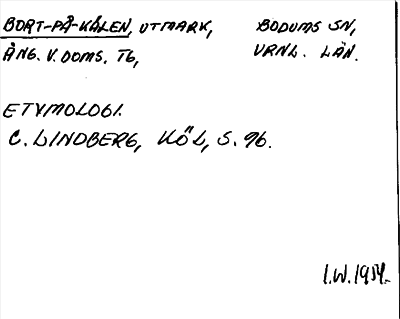 BORT-PÅ-KÅLEN, UTMARK, BODUMS SN,
ÅNG. V. DOMS. T6, VRNL. LÄN.
ETYMOLOGI.
C. LINDBERG, KÖL, S. 96.
I.W. 1954.